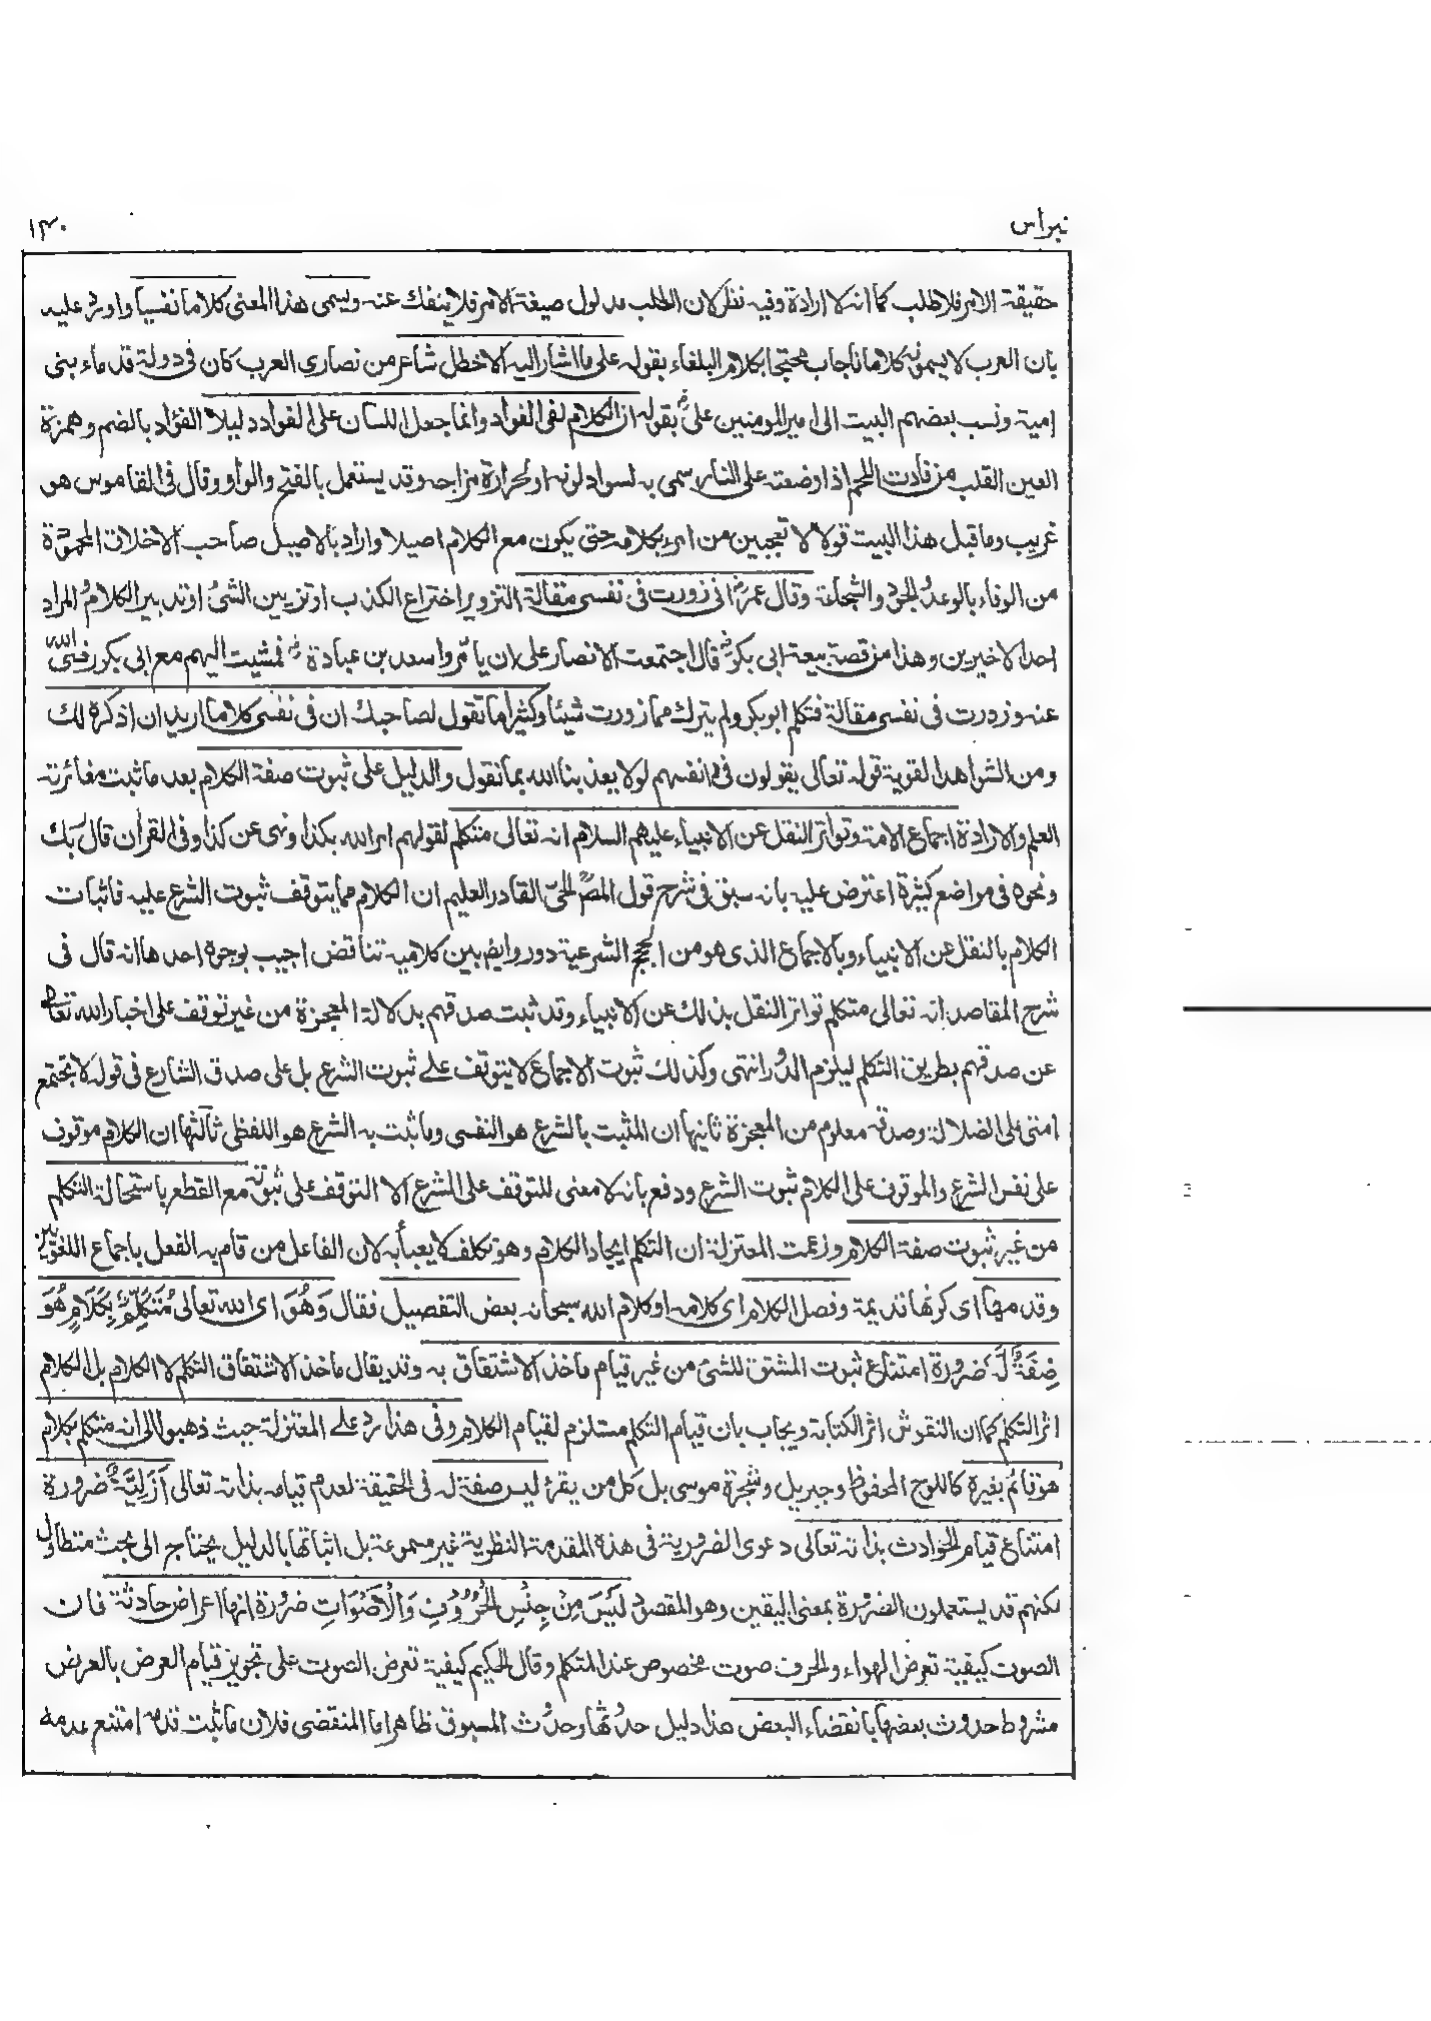 نبراس
۱۴۰
حقيقة الامر فلا طلب كما انه لا ارادة وفيه نظر لان الطلب مدلول صيغة الامر فلا ينفك عنه ويسمى هذا المعنى كلاما نفسيا واورد عليه
بان العرب لا يسمونه كلاما فاجاب محتجا بكلام البلغاء بقوله على ما اشار اليه الاخطل شاعر من نصارى العرب كان فى دولة قدماء بنى
امية ونسب بعضهم البيت الى امير المومنين علىؓ بقوله ان الكلام لفى الفواد وانما جعل اللسان على الفواد دليلا الفؤاد بالضم وهمزة
العين القلب من فأدت اللحم اذا وضعته على النار سمى به لسواد لونه او لحرارة مزاجه وقد يستعمل بالفتح والواو وقال فى القاموس هو
غريب وما قبل هذا البيت قوله لا تعجبين من امرء بكلامه حتى يكون مع الكلام اصيلا واراد بالاصيل صاحب الاخلاق المحمودة
من الوفاء بالوعد والجود والشجاعة وقال عمرؓ انى زورت فى نفسى مقالة التزوير اختراع الكذب او تزيين الشئ او تدبير الكلام والمراد
احد الاخيرين وهذا من قصة بيعة ابى بكرؓ قال اجتمعت الانصار على ان يأمروا سعد بن عبادةؓ فمشيت اليهم مع ابى بكر رضى الله
عنه وزورت فى نفسى مقالة فتكلم ابو بكر ولم يترك مما زورت شيئا وكثيرا ما تقول لصاحبك ان فى نفسى كلاما اريد ان اذكره لك
ومن الشواهد القوية قوله تعالى يقولون فى انفسهم لولا يعذبنا الله بما نقول والدليل على ثبوت صفة الكلام بعد ما ثبت مغائرته
العلم والارادة اجماع الامة وتواتر النقل عن الانبياء عليهم السلام انه تعالى متكلم لقولهم امر الله بكذا ونهى عن كذا وفى القرأن قال ربك
ونحوه فى مواضع كثيرة اعترض عليه بانه سبق فى شرح قول المصؒ الحى القادر العليم ان الكلام مما يتوقف ثبوت الشرع عليه فاثبات
الكلام بالنقل عن الانبياء وبالاجماع الذى هو من الحجج الشرعية دور وايضا بين كلاميه تناقض اجيب بوجوه احدها انه قال فى
شرح المقاصد انه تعالى متكلم تواتر النقل بذلك عن الانبياء وقد ثبت صدقهم بدلالة المعجزة من غير توقف على اخبار الله تعالى
عن صدقهم بطريق التكلم ليلزم الدور انتهى وكذلك ثبوت الاجماع لا يتوقف على ثبوت الشرع بل على صدق الشارع فى قوله لا تجتمع
امتى على الضلالة وصدقه معلوم من المعجزة ثانيها ان المثبت بالشرع هو النفسى وما ثبت به الشرع هو اللفظى ثالثها ان الكلام موقوف
على نفس الشرع والموقوف على الكلام ثبوت الشرع ودفع بانه لا معنى للتوقف على الشرع الا التوقف على ثبوته مع القطع باستحالة التكلم
من غير ثبوت صفة الكلام وزعمت المعتزلة ان التكلم ايجاد الكلام وهو تكلف لا يعبأ به لان الفاعل من قام به الفعل باجماع اللغويين
وقد مهما اى كونها قديمة وفصل الكلام اى كلامه او كلام الله سبحانه بعض التفصيل فقال وَهُوَ اى الله تعالى مُتَكَلِّمٌ بِكَلَامٍ هُوَ
صِفَةٌ لَّهٗ ضرورة امتناع ثبوت المشتق للشئ من غير قيام ماخذ الاشتقاق به وقد يقال ماخذ الاشتقاق التكلم لا الكلام بل الكلام
اثر التكلم كما ان النقوش اثر الكتابة ويجاب بان قيام التكلم مستلزم لقيام الكلام وفى هذا رد على المعتزلة حيث ذهبوا الى انه متكلم بكلام
هو قائم بغيره كاللوح المحفوظ وجبريل وشجرة موسى بل كل من يقرء ليس صفة له فى الحقيقة لعدم قيامه بذاته تعالى اَزَلِيَّةٌ ضرورة
امتناع قيام الحوادث بذاته تعالى دعوى الضرورية فى هذه المقدمة النظرية غير مسموعة بل اثباتها بالدليل يحتاج الى بحث متطاول
لكنهم قد يستعملون الضرورة بمعنى اليقين وهو المقصود لَيْسَ مِنْ جِنْسِ الْحُرُوْفِ وَالْاَصْوَاتِ ضرورة انها اعراض حادثة فان
الصوت كيفية تعرض الهواء والحرف صوت مخصوص عند المتكلم وقال الحكيم كيفية تعرض الصوت على تجويز قيام العرض بالعرض
مشروط حدوث بعضها بانقضاء البعض هذا دليل حدوثها وحدوث المسبوق ظاهر اما المنقضى فلان ما ثبت قدمه امتنع عدمه